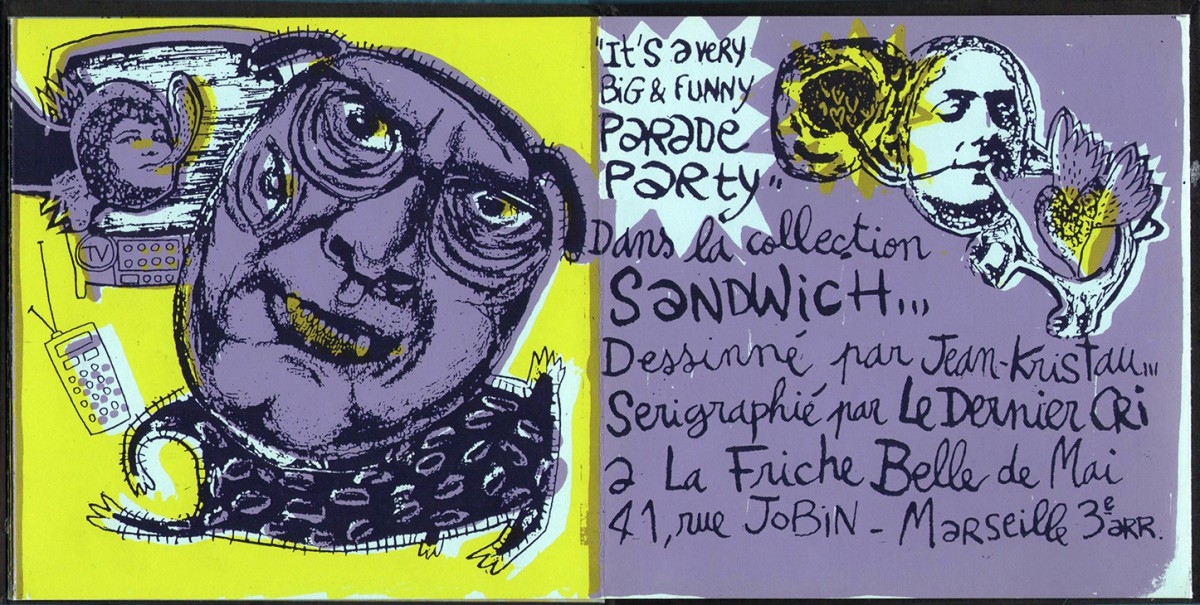 TV
"It's a very
BiG & FUNNY
PaRaDe
PaRty"
Dans la collection
SaNDWicH...
Dessinné par Jean-Kristau...
Serigraphié par Le DeRNieR CRi
a La Friche Belle de Mai
41, rue JoBiN - MaRseille 3e aRR.